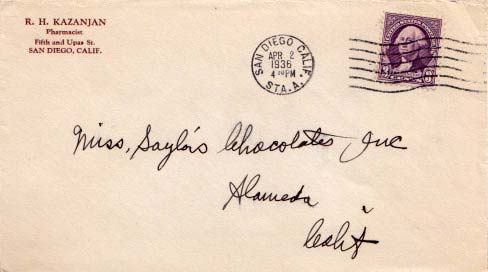 R. H. KAZANJAN
Pharmacist
Fifth and Upas St.
SAN DIEGO, CALIF.
SAN DIEGO CALIF.
APR 2
1936
4 PM
STA. A.
Miss, Saylors Chocolates, Inc
Alameda
Calif